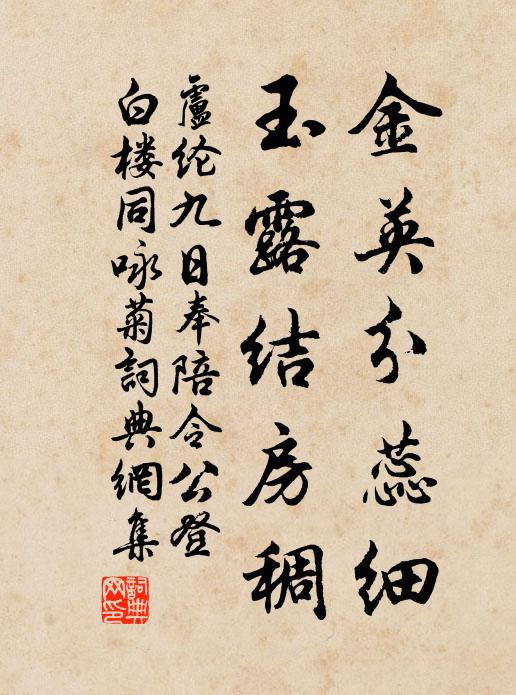 金英分蕊细
玉露结房稠
盧纶九日奉陪令公登
白楼同咏菊詞典網集
詞典網印